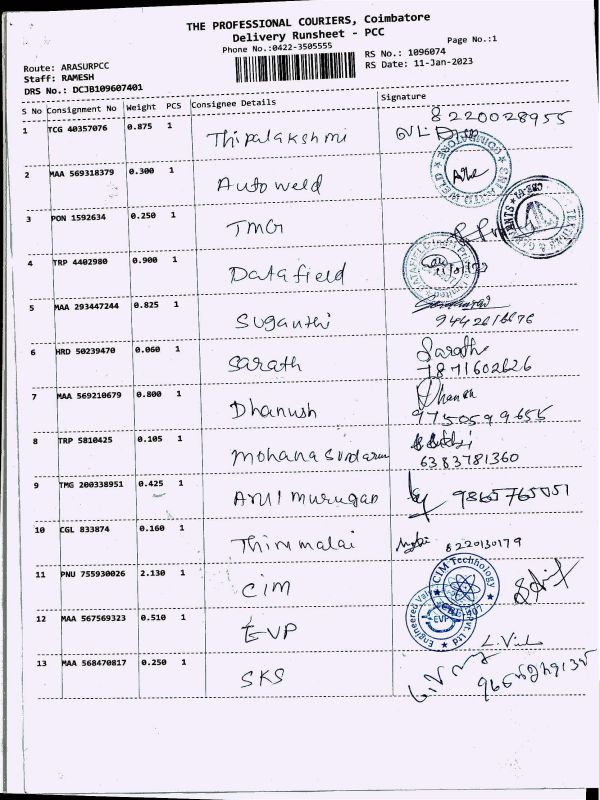 THE PROFESSIONAL COURIERS, Coimbatore
Delivery Runsheet - PCC
Phone No.:0422-3505555
Page No.:1
Route: ARASURPCC
Staff: RAMESH
DRS No.: DCJB109607401
RS No.: 1096074
RS Date: 11-Jan-2023
S No Consignment No Weight PCS Consignee Details Signature
1 TCG 40357076 0.875 1 Thipalakshmi 8220028955
2 MAA 569318379 0.300 1 Autoweld
3 PON 1592634 0.250 1 TMG
4 TRP 4402980 0.900 1 Datafield
5 MAA 293447244 0.825 1 Suganthi
6 HRD 50239470 0.060 1 Sarath Sarath
7871602626
7 MAA 569210679 0.800 1 Dhanush Dhanush
9750599655
8 TRP 5810425 0.105 1 Mohana Sundaram
6383781360
9 TMG 200338951 0.425 1 Arul Murugan 9865765051
10 CGL 833874 0.160 1 Thirumalai 8220130179
11 PNU 755930026 2.130 1 CIM
CIM Technology
12 MAA 567569323 0.510 1 EVP
Engineered Pvt. Ltd
EVP
13 MAA 568470817 0.250 1 SKS